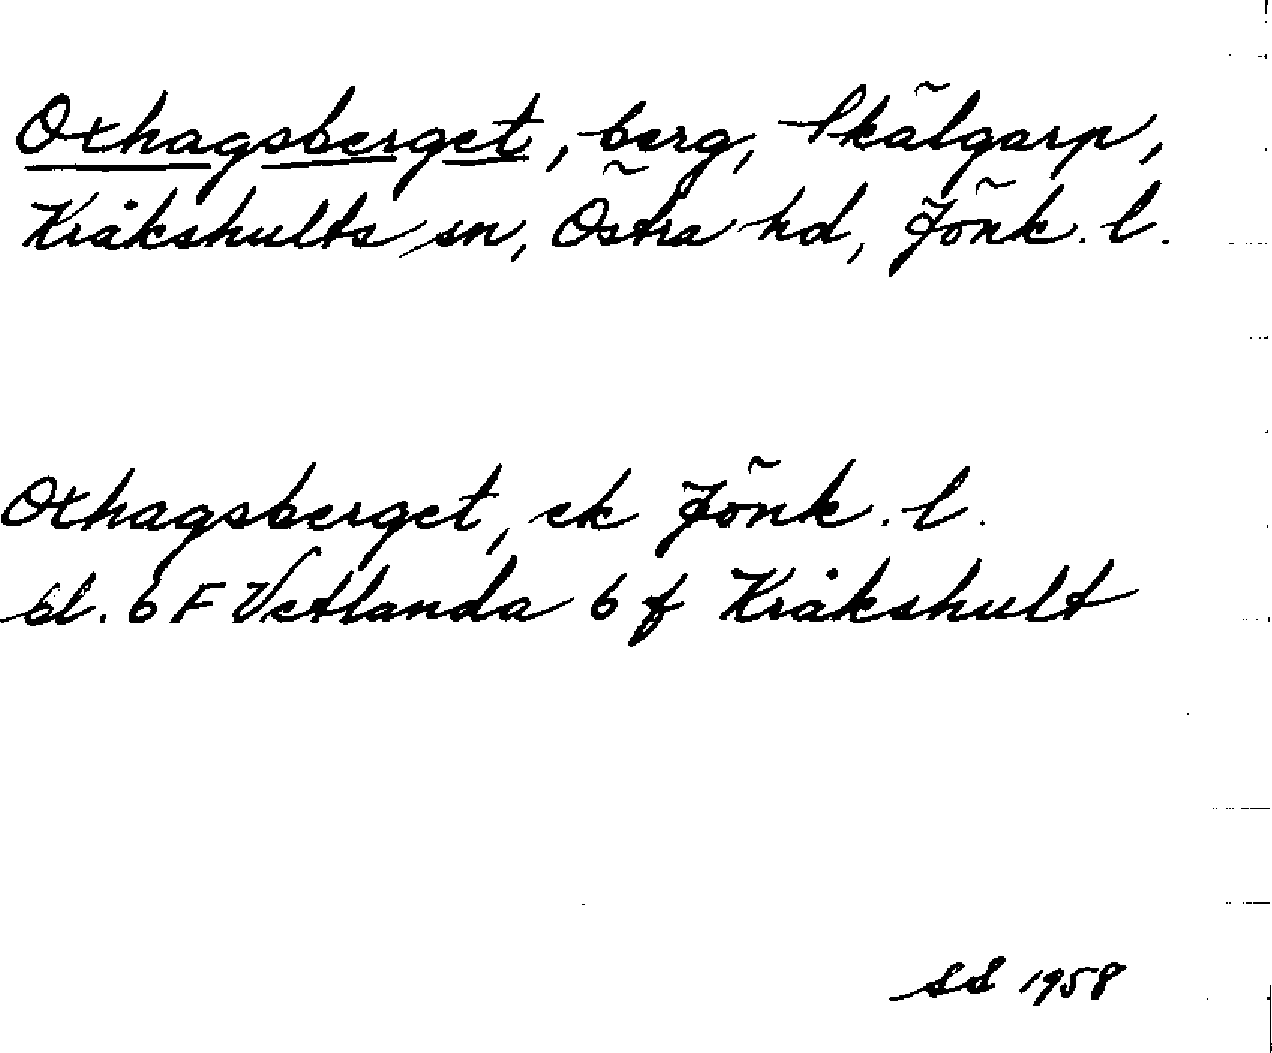 Oxhagsberget, berg, Skälgarp,
Kråkshults sn, Östra hd, Jönk. l.
Oxhagsberget, ek Jönk. l.
bl. 6 F Vetlanda 6 f Kråkshult
SS 1958